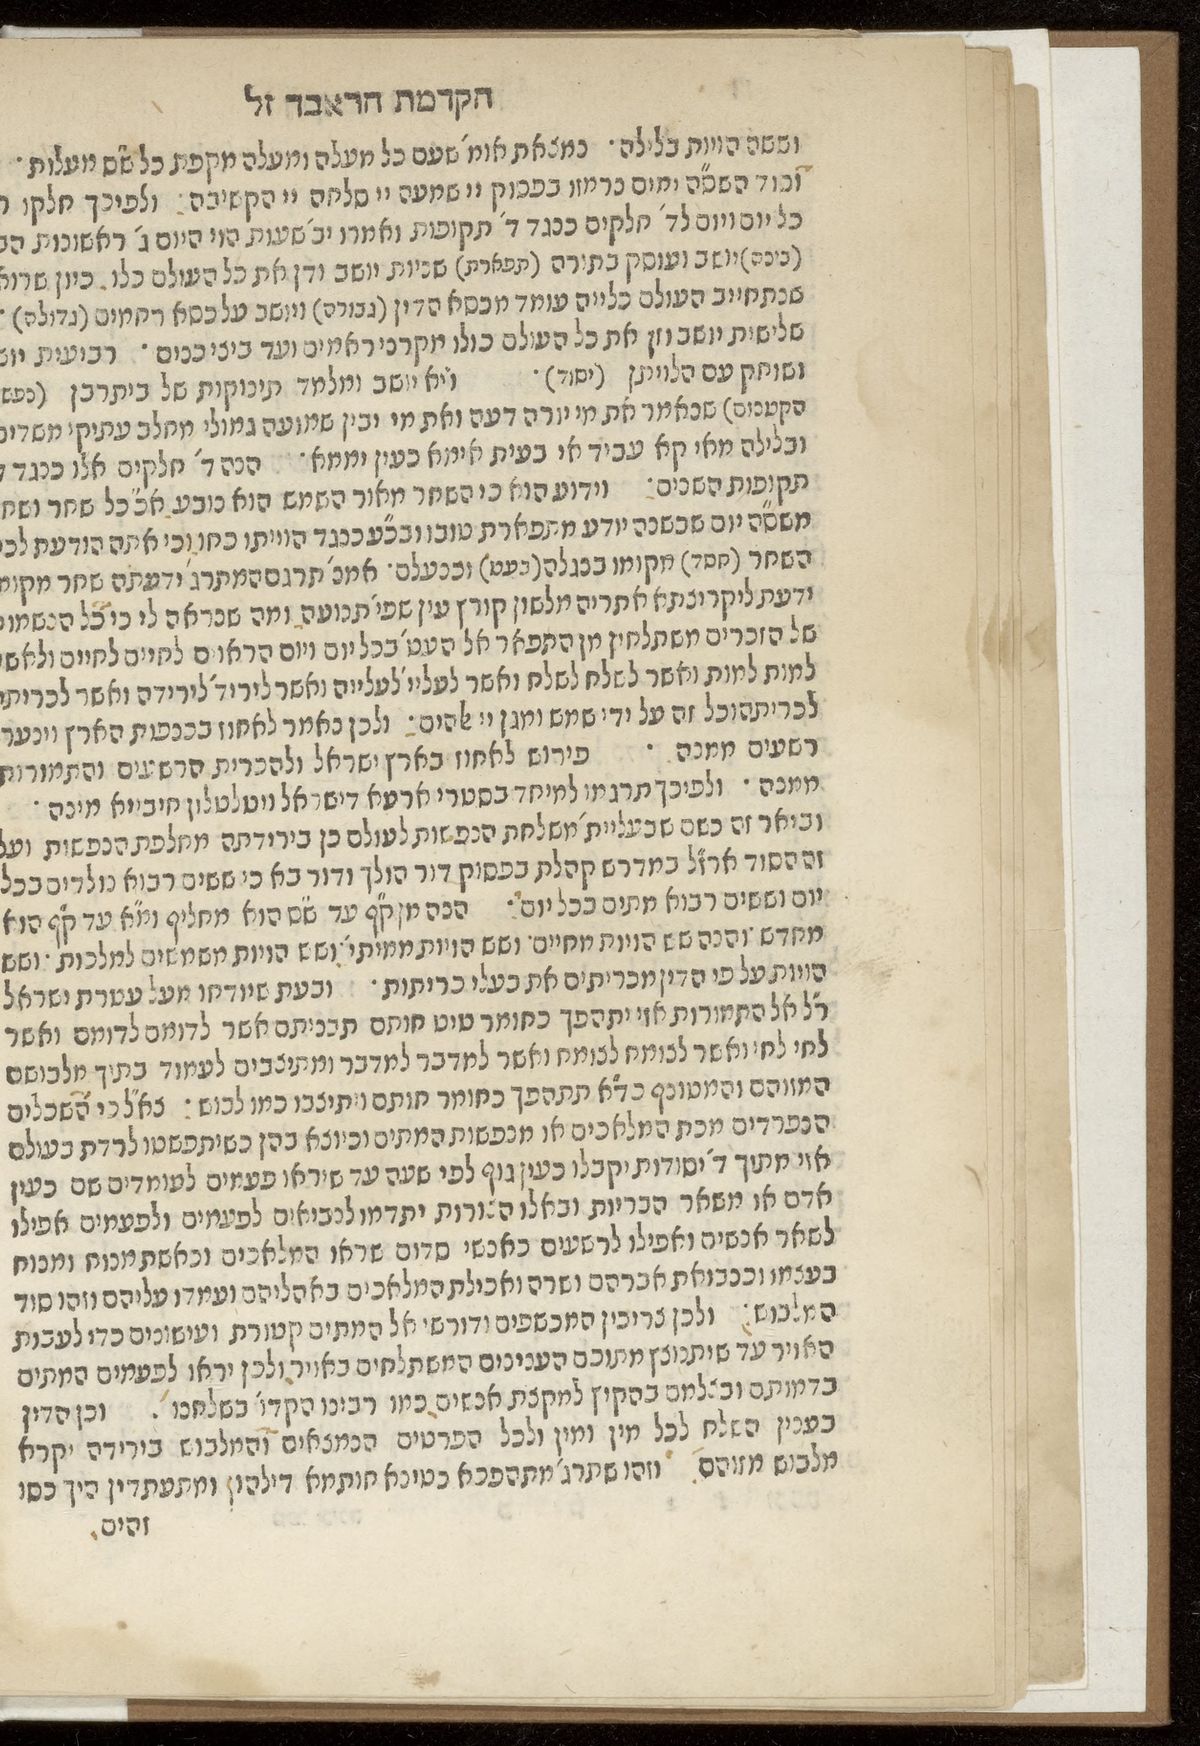 הקדמת הראבד זל
וששה הויות בלילה· נמצאת אומ׳ שעם כל מעלה ומעלה מקפת כל ש״ס מעלות·
וכוד השס״ה ימים כרמוז בפסוק יי שמעה יי סלחה יי הקשיבה: ולפיכך חלקו
כל יום ויום לד׳ חלקים כנגד ד׳ תקופות ואמרו יב׳ שעות הוי היום ג׳ ראשונות
(בינה) יושב ועוסק בתורה (תפארת) שניות יושב ודן את כל העולם כלו. כיון
שנתחייב העולם כלייה עומד מכסא הדין (גבורה) ויושב על כסא רחמים (גדולה)·
שלישית יושב וזן את כל העולם כולו מקרני ראמים ועד ביצי כנים· רביעית
ושוחק עם הלויתן (יסוד)· וי״א יושב ומלמד תינוקות של בית רבן
הקטנים) שנאמר את מי יורה דעה ואת מי יבין שמועה גמולי מחלב עתיקי
ובלילה מאי קא עביד אי בעית אימא כעין יממא· הנה ד׳ חלקים אלו כנגד
תקופות השנים: וידוע הוא כי השחר מאור השמש הוא נובע אכ״כל שחר
משס״ה יום שבשנה יודע מתפארת טובו ובכ״ע כנגד הוייתו כחו וכי אתה הודעת
השחר (חסד) מקומו בנגלה (בעט) ובנעלם· אמנ׳ תרגם המתרג׳ ידעתה שחר
ידעת ליקריצתא אתריה מלשון קורץ עין שפי׳ תנועה ומה שנראה לי כי כל
של הזכרים משתלחין מן התפאר אל העט׳ בכל יום ויום הראוים לחיים לחיים
למות למות ואשר לשלח לשלח ואשר לעליי׳ לעלייה ואשר לירידי׳ לירידה ואשר
לכריתה וכל זה על ידי שמש ומגן יי אלהים: ולכן נאמר לאחוז בכנפות הארץ
רשעים ממנה· פירוש לאחוז בארץ ישראל ולהכרית הרשעים והתמורות
ממנה· ולפיכך תרגמו למיחד בסטרי ארעא דישראל ויטלטלון חיבייא מינה·
ובואר זה כשם שבעליית׳ משלחת הנפשות לעולם כן בירידתה מחלפת הנפשות
זה הסוד ארז״ל במדרש קהלת בפסוק דור הולך ודור בא כי ששים רבוא נולדים בכל
יום וששים רבוא מתים בכל יום: הנה מן ק״ף עד ש״ס הוא מחליף ומ״א עד ק״ף הוא
מחדש והנה שש הויות מחיים· ושש הויות ממיתי׳ ושש הויות משמשים למלכות· ושש
הויות על פי הדין מכריתים את בעלי כריתות· ובעת שיודחו מעל עטרת ישראל
ר״ל אל התמורות אזי יתהפך כחומר טיט חותם תבניתם אשר לדומם לדומם ואשר
לחי לחי ואשר לצומח לצומח ואשר למדבר למדבר ומתיצבים לעמוד בתוך מלבושם
המזוהם והמטונף כד״א תתהפך כחומר חותם ויתיצבו כמו לבוש: צא״ל כי השכלים
הנפרדים מכת המלאכים או מנפשות המתים וכיוצא בהן כשיתפשטו לרדת בעולם
אזי מתוך ד׳ יסודות יקבלו כעין גוף לפי שעה עד שיראו פעמים לעומדים שם כעין
אדם או משאר הבריות ובאלו הצורות יתדמו לנביאים לפעמים ולפעמים אפילו
לשאר אנשים ואפילו לרשעים כאנשי סדום שראו המלאכים וכאשת מנוח ומנוח
בעצמו וכנבואת אברהם ושרה ואכילת המלאכים באהליהם ועמדו עליהם וזהו סוד
המלבוש: ולכן צריכין המכשפים ודורשי אל המתים קטורת ועישונים כדי לעבות
האויר עד שיתנוצץ מתוכם הענינים המשתלחים באויר ולכן יראו לפעמים המתים
בדמותם ובצלמם בהקיץ למקצת אנשים כמו רבינו הקדו׳ בשלחנו׳. וכן הדין
בענין השלח לכל מין ומין ולכל הפרטים הנמצאים והמלבוש בירידה יקרא
מלבוש מזוהם וזהו שתרג׳ מתהפכא כטינא חותמא דילהון ומתעתדין היך כסו
זהים.